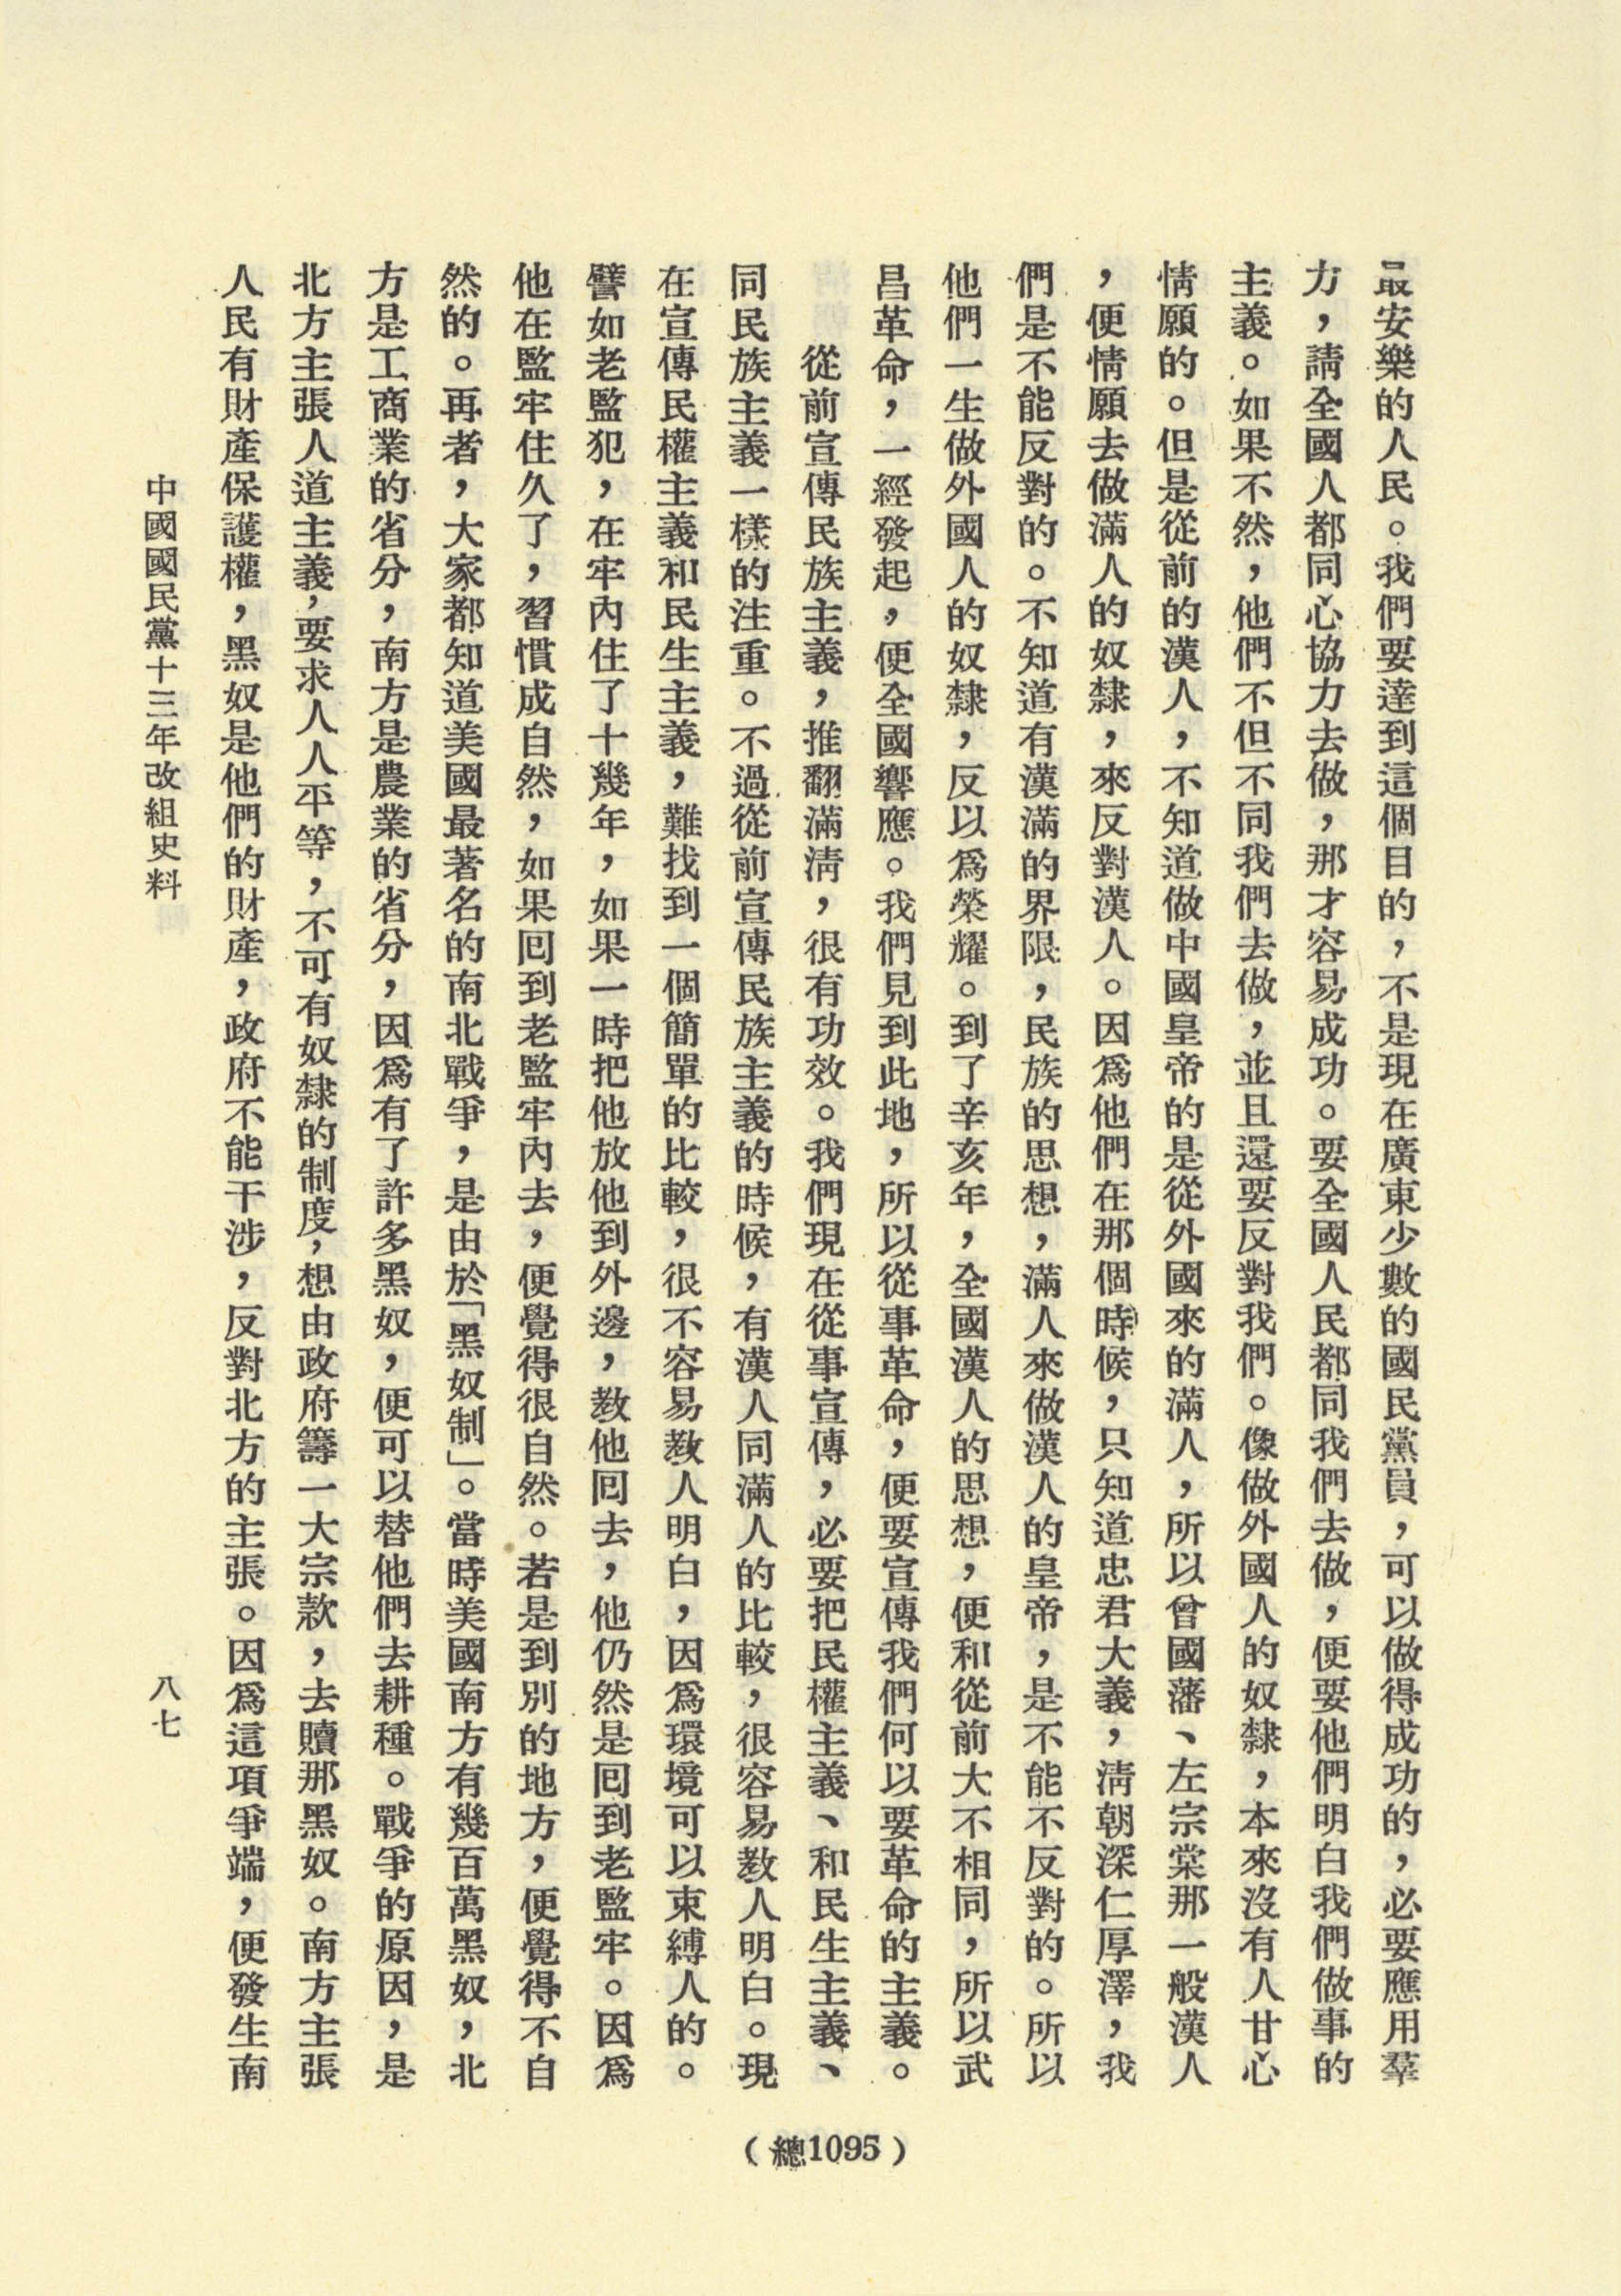 最安樂的人民。我們要達到這個目的，不是現在廣東少數的國民黨員，可以做得成功的，必要應用羣
力，請全國人都同心協力去做，那才容易成功。要全國人民都同我們去做，便要他們明白我們做事的
主義。如果不然，他們不但不同我們去做，並且還要反對我們。像做外國人的奴隸，本來沒有人甘心
情願的。但是從前的漢人，不知道做中國皇帝的是從外國來的滿人，所以曾國藩、左宗棠那一般漢人
，便情願去做滿人的奴隸，來反對漢人。因爲他們在那個時候，只知道忠君大義，淸朝深仁厚澤，我
們是不能反對的。不知道有漢滿的界限，民族的思想，滿人來做漢人的皇帝，是不能不反對的。所以
他們一生做外國人的奴隸，反以爲榮耀。到了辛亥年，全國漢人的思想，便和從前大不相同，所以武
昌革命，一經發起，便全國響應。我們見到此地，所以從事革命，便要宣傳我們何以要革命的主義。
從前宣傳民族主義，推翻滿淸，很有功效。我們現在從事宣傳，必要把民權主義、和民生主義、
同民族主義一樣的注重。不過從前宣傳民族主義的時候，有漢人同滿人的比較，很容易敎人明白。現
在宣傳民權主義和民生主義，難找到一個簡單的比較，很不容易敎人明白，因爲環境可以束縛人的。
譬如老監犯，在牢內住了十幾年，如果一時把他放他到外邊，敎他囘去，他仍然是囘到老監牢。因爲
他在監牢住久了，習慣成自然，如果囘到老監牢內去，便覺得很自然。若是到別的地方，便覺得不自
然的。再者，大家都知道美國最著名的南北戰爭，是由於「黑奴制」。當時美國南方有幾百萬黑奴，北
方是工商業的省分，南方是農業的省分，因爲有了許多黑奴，便可以替他們去耕種。戰爭的原因，是
北方主張人道主義，要求人人平等，不可有奴隸的制度，想由政府籌一大宗款，去贖那黑奴。南方主張
人民有財產保護權，黑奴是他們的財產，政府不能干涉，反對北方的主張。因爲這項爭端，便發生南
中國國民黨十三年改組史料
八七
（總1095）